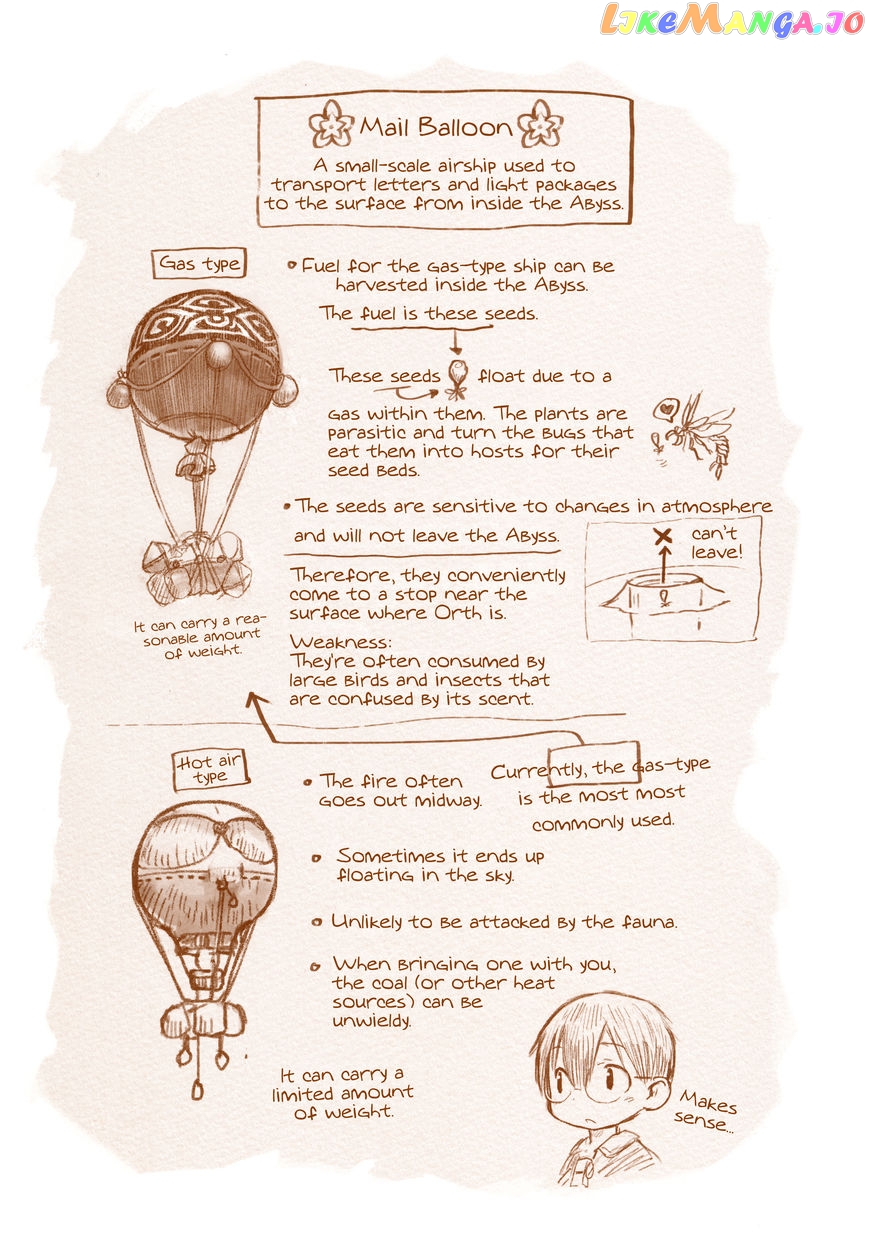 LikeManga.io
Mail Balloon
A small-scale airship used to
transport letters and light packages
to the surface from inside the Abyss.
Gas type
• Fuel for the gas-type ship can be
harvested inside the Abyss.
The fuel is these seeds.
These seeds float due to a
gas within them. The plants are
parasitic and turn the bugs that
eat them into hosts for their
seed beds.
• The seeds are sensitive to changes in atmosphere
and will not leave the Abyss.
can't
leave!
Therefore, they conveniently
come to a stop near the
surface where Orth is.
It can carry a rea-
sonable amount
of weight.
Weakness:
They're often consumed by
large birds and insects that
are confused by its scent.
Hot air
type
• The fire often
goes out midway.
Currently, the gas-type
is the most most
commonly used.
• Sometimes it ends up
floating in the sky.
• Unlikely to be attacked by the fauna.
• When bringing one with you,
the coal (or other heat
sources) can be
unwieldy.
It can carry a
limited amount
of weight.
Makes
sense...